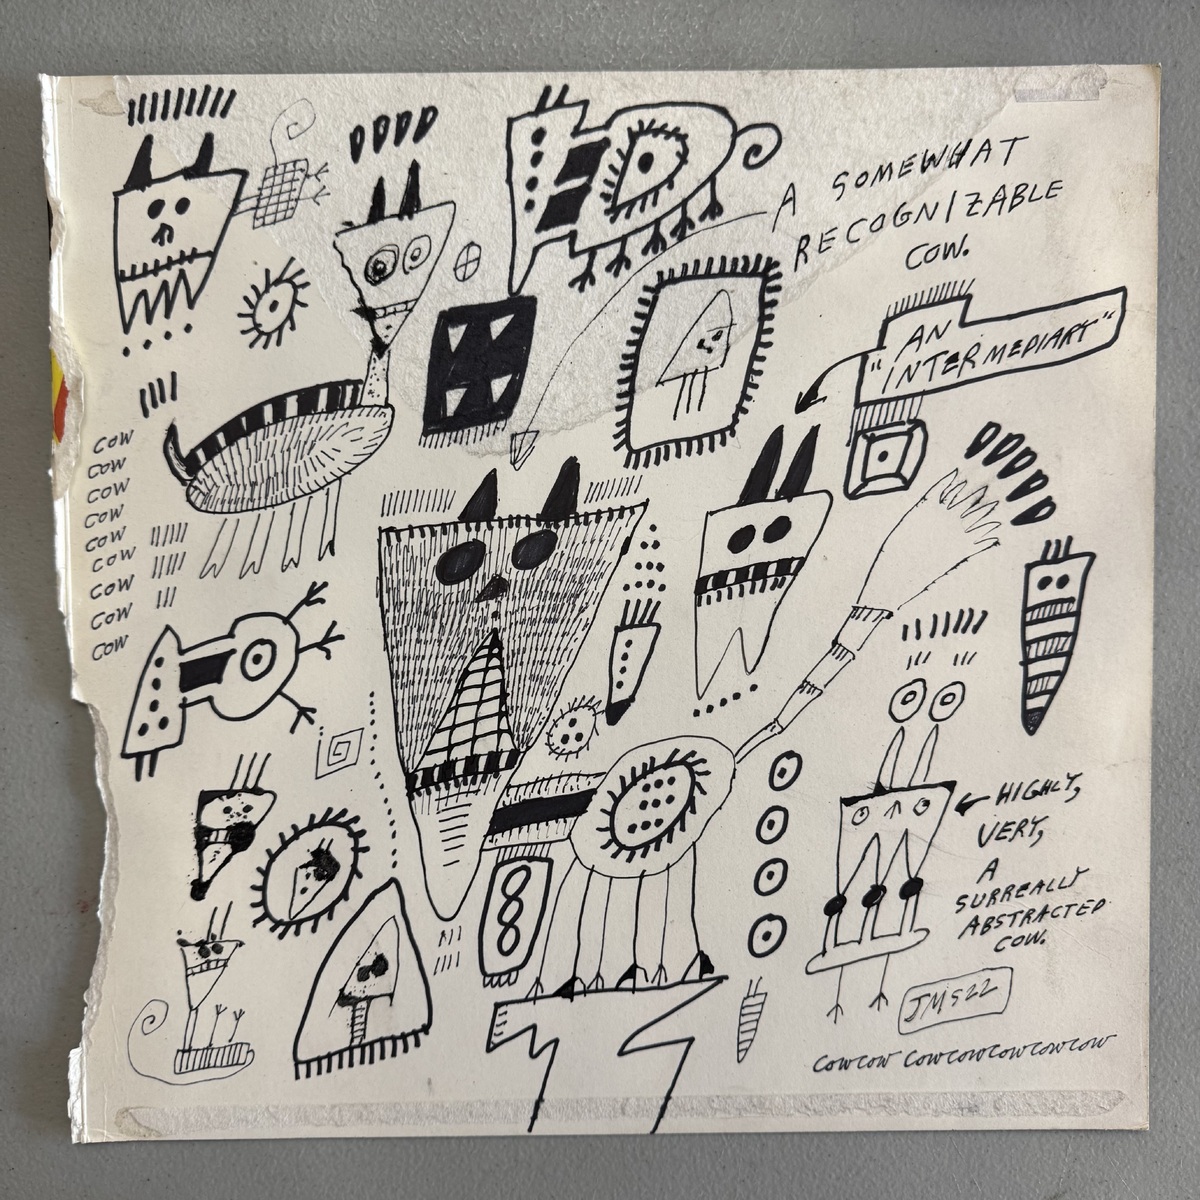 A SOMEWHAT
RECOGNIZABLE
COW.
AN
"INTERMEDIARY"
COW
COW
COW
COW
COW
COW
COW
COW
COW
HIGHLY,
VERY,
A
SURREALLY
ABSTRACTED
COW.
JMS22
cowcow cowcowcowcowcow